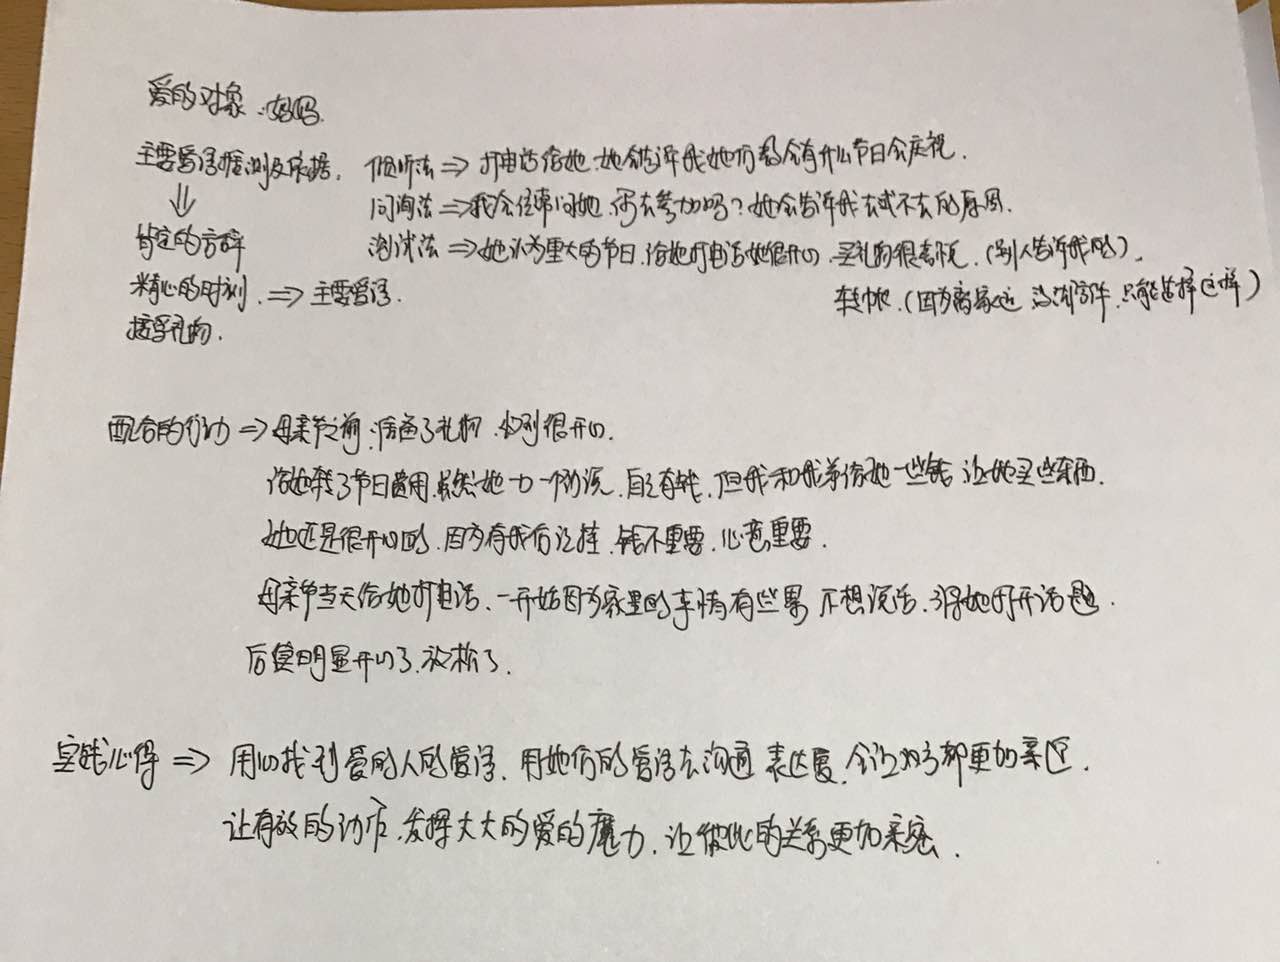 爱的对象：妈妈.
主要爱语推测及依据. 倾听法 ⇒ 打电话给她.她会告诉我她们都会有什么节日会庆祝.
⇓ 问询法 ⇒ 我会经常问她.你去参加吗？她会告诉我去或不去的原因.
肯定的言辞 测试法 ⇒ 她认为重大的节日.给她打电话她很开心.买礼物很喜悦.（别人告诉我的）.
精心的时刻. ⇒ 主要爱语. 转帐.（因为离家远 没啥条件.只能选择这样）
接受礼物.
配合的行动 ⇒ 母亲节之前.准备了礼物.收到很开心.
给她转了节日费用.虽然她一口一个的说.自己有钱.但我和我弟给她一些钱 让她买些东西.
她还是很开心的.因为有我们记挂.钱不重要.心意重要.
母亲节当天给她打电话.一开始因为家里的事情有些累 不想说话.得她打开话题.
后续明显开心了.放松了.
实践心得 ⇒ 用心找到爱的人的爱语.用她们的爱语去沟通 表达爱.会让双方都更加亲近.
让有效的动作.发挥大大的爱的魔力.让彼此的关系更加亲密.